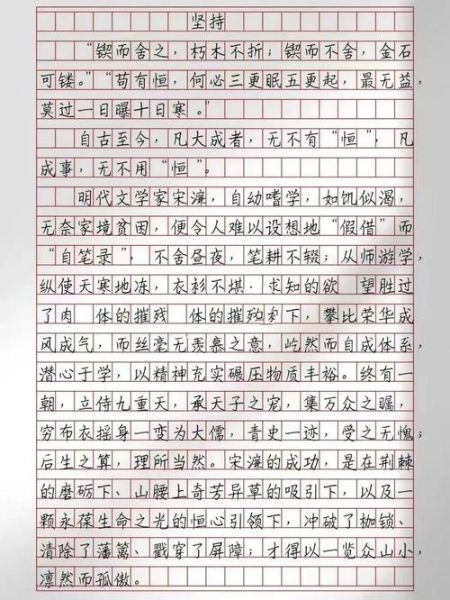 坚持
“锲而舍之，朽木不折；锲而不舍，金石
可镂。”“苟有恒，何必三更眠五更起，最无益，
莫过一日曝十日寒。”
自古至今，凡大成者，无不有“恒”，凡
成事，无不用“恒”。
明代文学家宋濂，自幼嗜学，如饥似渴，
无奈家境贫困，便令人难以设想地“假借”而
“自笔录”，不舍昼夜，笔耕不辍；从师游学，
纵使天寒地冻，衣衫不堪．求知的欲 望胜过
了肉 体的摧残 体的摧残下，攀比荣华成
风成气，而丝毫无羡慕之意，屹然而自成体系，
潜心于学，以精神充实碾压物质丰裕。终有一
朝，立侍九重天，承天子之宠，集万众之瞩，
穷布衣摇身一变为大儒，青史一迹，受之无愧；
后生之算，理所当然。宋濂的成功，是在荆棘
的磨砺下、山腰上奇芳异草的吸引下，以及一
颗永葆生命之光的恒心引领下，冲破了枷锁、
清除了藩篱、戳穿了屏障；才得以一览众山小，
凛然而孤傲。